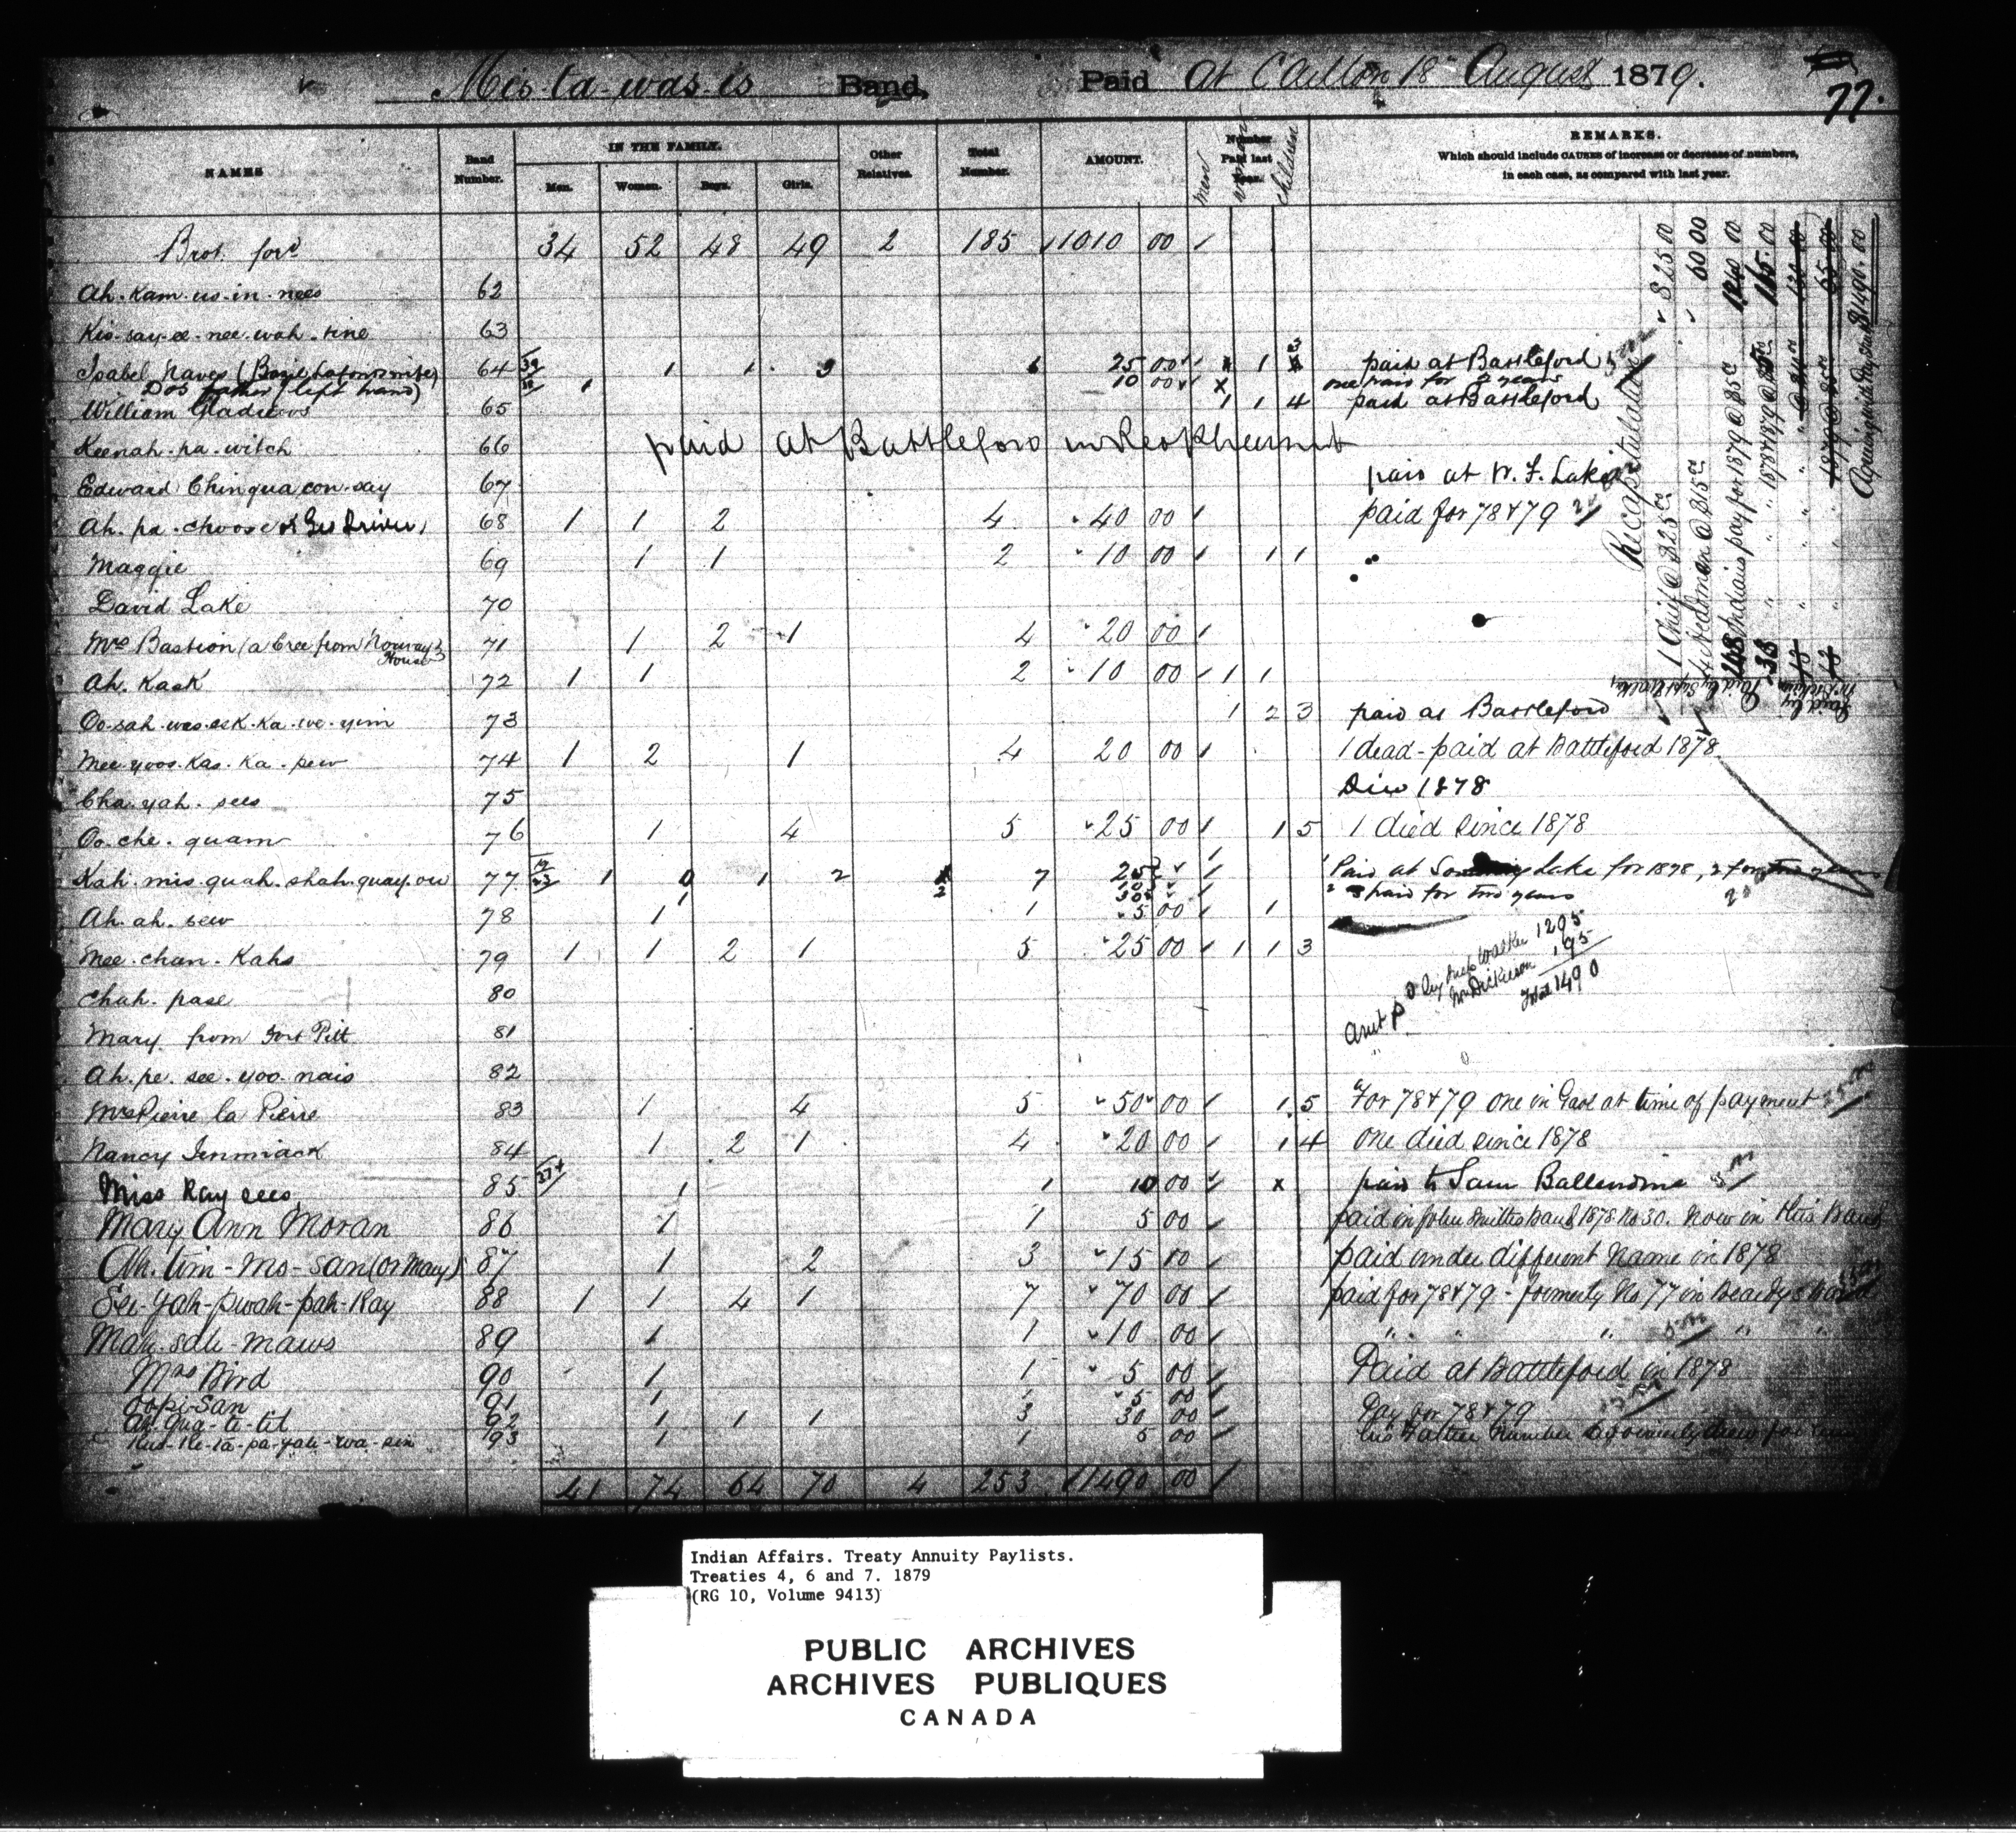 Mis-ta-was-is Band, Paid At Carlton 18th August 1879.
77.
NAMES
Band Number.
IN THE FAMILY.
Men. Women. Boys. Girls.
Other Relatives.
Total Number.
AMOUNT.
Number Paid last Year.
men women children
REMARKS.
Which should include CAUSES of increase or decrease of numbers,
in each case, as compared with last year.
Brot. ford 34 52 48 49 2 185 1010 00
Ah-kam-us-in-nees 62
Kis-say-ee-nee-wah-sine 63
Isabel Naves 64 1 1 3 6 25 00 1 3 paid at Battleford
Do's father (left hand) 1 10 00 x one paid for 2 years
William Gladieus 65 1 1 4 paid at Battleford
Keenah-pa-witch 66 paid at Battleford in Red Pheasant
Edward Chinquacon-say 67 paid at W. F. Lake
Ah-pa-choose or Geo Driver 68 1 1 2 4 40 00 paid for 78 & 79
Maggie 69 1 1 2 10 00 1 1
David Lake 70
Mrs Bastion (a Cree from Norway House) 71 1 2 1 4 20 00
Ah-kask 72 1 1 2 10 00 1 1
Oo-sah-was-ask-ka-we-yim 73 1 2 3 paid at Battleford
Mee-yoos-kas-ka-pew 74 1 2 1 4 20 00 1 dead - paid at Battleford 1878.
Cha-yah-sees 75 Died 1878
Oo-che-quam 76 1 4 5 25 00 1 5 1 died since 1878
Kah-mis-quah-shah-quay-ou 77 1 1 2 2 7 25 Paid at Lake for 1878, 2 for two years
2 3 paid for two years
Ah-ah-sew 78 1 1 5 00 1
Mee-chan-kahs 79 1 1 2 1 5 25 00 1 1 3
Chah-pase 80
Mary from Fort Pitt 81
Ah-pe-see-yoo-nais 82
Mrs Pierre la Pierre 83 1 4 5 50 00 1 5 For 78 & 79 one in Gaol at time of payment
Nancy Jenmiack 84 1 2 1 4 20 00 1 4 one died since 1878
Miss Kay sees 85 1 1 10 00 x paid to Sam Ballendine
Mary Ann Moran 86 1 1 5 00 paid in John Smiths Band 1878 No 30. Now in this Band
Ah-tim-mo-san (or Mary) 87 1 2 3 15 00 paid under different name in 1878
See-yah-pwah-pah-kay 88 1 1 4 1 7 70 00 paid for 78 & 79 - formerly No 77 in Beardy's band
Mah-sah-maws 89 1 1 10 00 " " " " "
Mrs Bird 90 1 1 5 00 Paid at Battleford in 1878
Oopi-San 91 1 1 5 00
Ah-qua-te-tit 92 1 1 1 3 30 00 Pay for 78 & 79
93 1 1 5 00
41 74 64 70 4 253 1490 00
Recapitulation
1 Chief @ $25 00 $25 00
4 Headmen @ $15 00 60 00
248 Indians pay for 1879 @ $5 00 1240 00
" " 1878 & 1879 165.00
Agreeing with Pay Sheet $1490.00
Amt pd by Insp Walker 1295
Mr Dickieson 195
Total 1490
Indian Affairs. Treaty Annuity Paylists.
Treaties 4, 6 and 7. 1879
(RG 10, Volume 9413)
PUBLIC ARCHIVES
ARCHIVES PUBLIQUES
CANADA